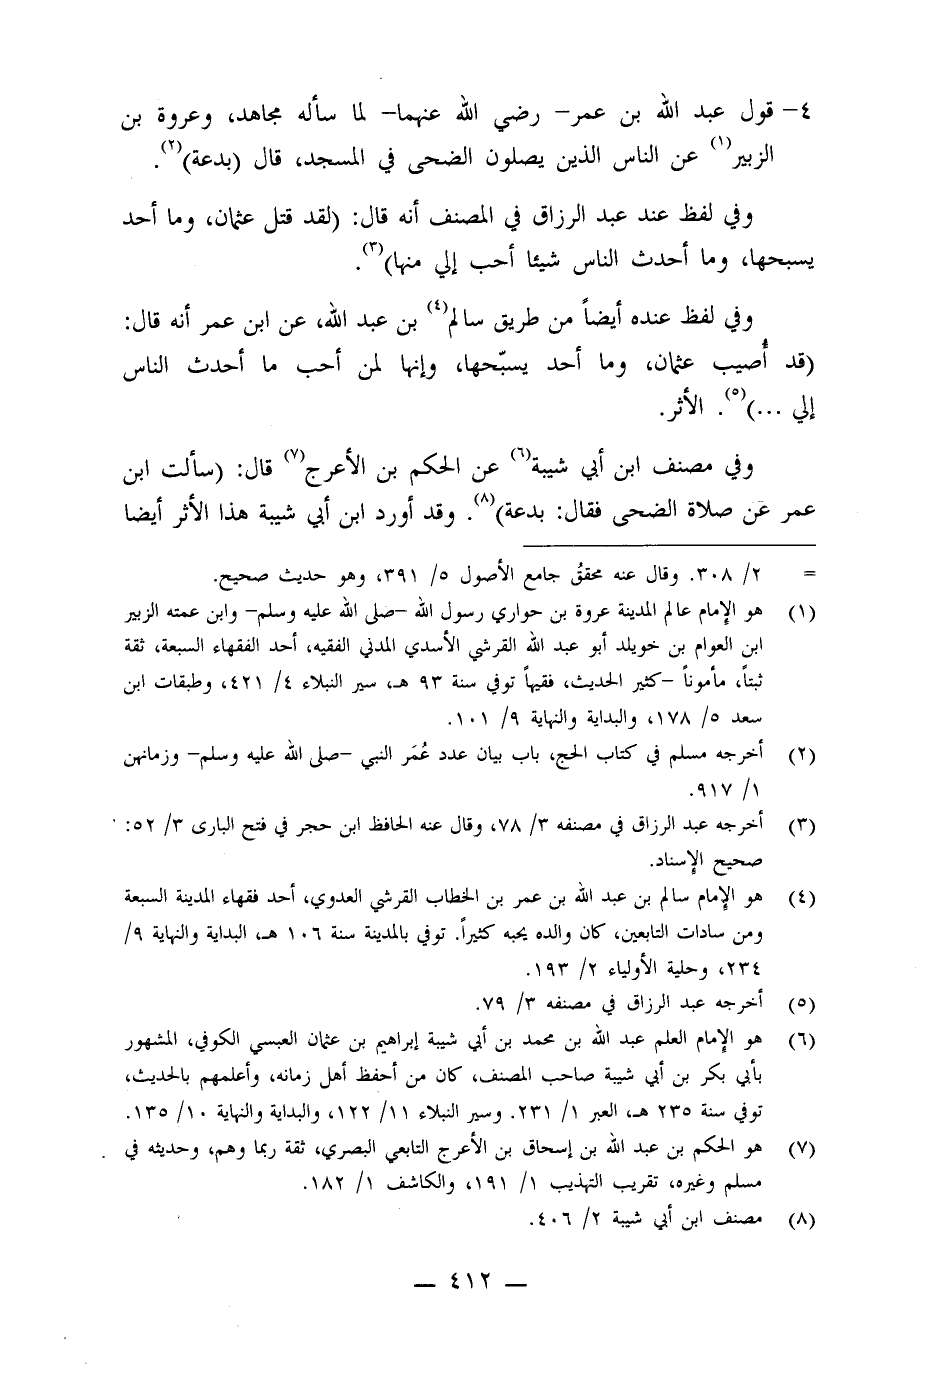 ٤- قول عبد الله بن عمر- رضي الله عنهما- لما سأله مجاهد، وعروة بن
الزبير(١) عن الناس الذين يصلون الضحى في المسجد، قال (بدعة)(٢).
وفي لفظ عند عبد الرزاق في المصنف أنه قال: (لقد قتل عثمان، وما أحد
يسبحها، وما أحدث الناس شيئا أحب إلي منها)(٣).
وفي لفظ عنده أيضاً من طريق سالم(٤) بن عبد الله، عن ابن عمر أنه قال:
(قد أُصيب عثمان، وما أحد يسبّحها، وإنها لمن أحب ما أحدث الناس
إلي ...)(٥). الأثر.
وفي مصنف ابن أبي شيبة(٦) عن الحكم بن الأعرج(٧) قال: (سألت ابن
عمر عن صلاة الضحى فقال: بدعة)(٨). وقد أورد ابن أبي شيبة هذا الأثر أيضا
= ٢/ ٣٠٨. وقال عنه محققُ جامع الأصول ٥/ ٣٩١، وهو حديث صحيح.
(١) هو الإمام عالم المدينة عروة بن حواري رسول الله -صلى الله عليه وسلم- وابن عمته الزبير
ابن العوام بن خويلد أبو عبد الله القرشي الأسدي المدني الفقيه، أحد الفقهاء السبعة، ثقة
ثبتاً، مأموناً -كثير الحديث، فقيهاً توفي سنة ٩٣ هـ، سير النبلاء ٤/ ٤٢١، وطبقات ابن
سعد ٥/ ١٧٨، والبداية والنهاية ٩/ ١٠١.
(٢) أخرجه مسلم في كتاب الحج، باب بيان عدد عُمَر النبي -صلى الله عليه وسلم- وزمانهن
١/ ٩١٧.
(٣) أخرجه عبد الرزاق في مصنفه ٣/ ٧٨، وقال عنه الحافظ ابن حجر في فتح البارى ٣/ ٥٢:
صحيح الإسناد.
(٤) هو الإمام سالم بن عبد الله بن عمر بن الخطاب القرشي العدوي، أحد فقهاء المدينة السبعة
ومن سادات التابعين، كان والده يحبه كثيراً. توفي بالمدينة سنة ١٠٦ هـ، البداية والنهاية ٩/
٢٣٤، وحلية الأولياء ٢/ ١٩٣.
(٥) أخرجه عبد الرزاق في مصنفه ٣/ ٧٩.
(٦) هو الإمام العلم عبد الله بن محمد بن أبي شيبة إبراهيم بن عثمان العبسي الكوفي، المشهور
بأبي بكر بن أبي شيبة صاحب المصنف، كان من أحفظ أهل زمانه، وأعلمهم بالحديث،
توفي سنة ٢٣٥ هـ، العبر ١/ ٢٣١. وسير النبلاء ١١/ ١٢٢، والبداية والنهاية ١٠/ ١٣٥.
(٧) هو الحكم بن عبد الله بن إسحاق بن الأعرج التابعي البصري، ثقة ربما وهم، وحديثه في
مسلم وغيره، تقريب التهذيب ١/ ١٩١، والكاشف ١/ ١٨٢.
(٨) مصنف ابن أبي شيبة ٢/ ٤٠٦.
— ٤١٢ —